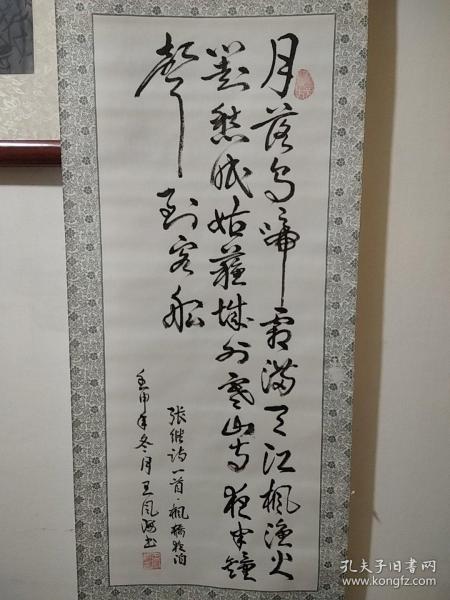 月落烏啼霜滿天江楓漁火
對愁眠姑蘇城外寒山寺夜半鐘
聲到客船
张继诗一首·楓橋夜泊
壬申年冬月王凤海书
孔夫子旧书网
www.kongfz.com